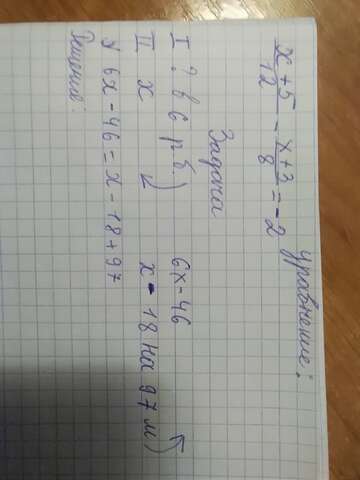 уравнение:
x+5/12 - x+3/8 = -2
Задача
I ? в 6 р б.) 6x-46
II x x-18 на 97 м)
6x-46=x-18+97
Решение: